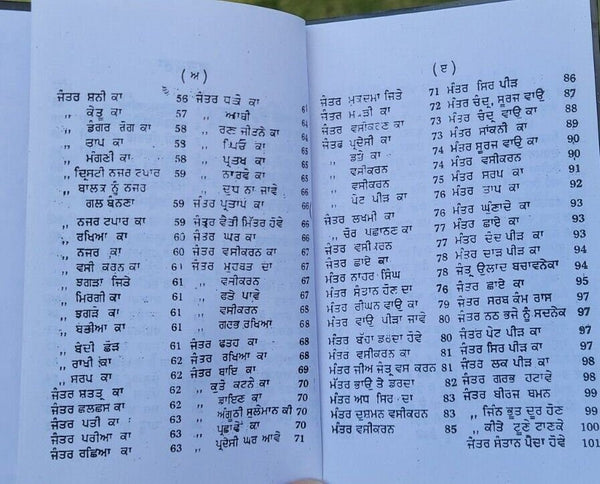 ( ਅ )
ਜੰਤਰ ਸਨੀ ਕਾ 56
,, ਕੇਤੂ ਕਾ 57
,, ਡੰਗਰ ਰੋਗ ਕਾ 58
,, ਤਾਪ ਕਾ 58
,, ਮੰਗਣੀ ਕਾ 58
,, ਦ੍ਰਿਸਟੀ ਨਜਰ ਟਪਾਰ 58
,, ਬਾਲਕ ਨੂੰ ਨਜਰ
ਗਲ ਬੰਨਣਾ 59
,, ਨਜਰ ਟਪਾਰ ਕਾ 59
,, ਰਖਿਆ ਕਾ 60
,, ਨਜਰ ਕਾ 60
,, ਵਸੀ ਕਰਨ ਕਾ 61
,, ਝਗੜਾ ਜਿਤੇ 61
,, ਮਿਰਗੀ ਕਾ 61
,, ਝਗੜੇ ਕਾ 61
,, ਕਾ 61
,, ਬੰਦੀ ਛੋੜ 61
,, ਰਾਖੀ ਕਾ 62
,, ਸਰਪ ਕਾ 62
ਜੰਤਰ ਸ਼ਤਰੂ ਕਾ 62
ਜੰਤਰ ਛਲਛਸ ਕਾ 62
ਜੰਤਰ ਪਤੀ ਕਾ 63
ਜੰਤਰ ਪਰੀਆ ਕਾ 63
ਜੰਤਰ ਰਛਿਆ ਕਾ 63
ਜੰਤਰ ਧੜੇ ਕਾ
,, ਆਬੀ
,, ਰਣ ਜੀਤਨੇ ਕਾ
,, ਕਾ
,, ਪ੍ਰਤਖ ਕਾ
,, ਨਾਰਵੇ ਕਾ
,, ਦੁਧ ਨਾ ਜਾਵੇ
ਜੰਤਰ ਪ੍ਰਤਾਪ ਕਾ 66
ਜੰਤਰ ਵੈਰੀ ਮਿੱਤਰ ਹੋਵੇ 66
ਜੰਤਰ ਘਰ ਕਾ 66
ਜੰਤਰ ਵਸੀਕਰਨ ਕਾ 67
ਜੰਤਰ ਮੁਹਬਤ ਦਾ 67
,, ਵਸੀਕਰਨ 67
,, ਫਤੇ ਪਾਵੇ 67
,, ਵਸੀਕਰਨ 68
,, ਗਰਭ ਰਖਿਆ 68
ਜੰਤਰ ਫਤਹ ਕਾ 68
ਜੰਤਰ ਰਖਿਆ ਕਾ 68
ਜੰਤਰ ਬਾਇ ਕਾ 69
,, ਕੁਤੇ ਕਟਨੇ ਕਾ 70
,, ਡਾਇਣ ਕਾ 70
,, ਅੰਗੂਠੀ ਸੁਲੇਮਾਨ ਕੀ 70
,, ਪ੍ਰਛਾਵੇਂ ਕਾ 70
,, ਪ੍ਰਦੇਸੀ ਘਰ ਆਵੇ 71
( ੲ )
ਜੰਤਰ ਮੁਕਦਮਾ ਜਿਤੇ 71
ਜੰਤਰ ਕਾ 72
ਜੰਤਰ ਵਸੀਕਰਣ ਕਾ 73
ਜੰਤਰ ਪ੍ਰਦੇਸੀ ਕਾ 73
,, ਫਤੇ ਕਾ 74
,, ਵਸੀਕਰਨ 74
,, ਵਸੀਕਰਨ 75
,, ਪੇਟ ਪੀੜ ਕਾ 76
ਜੰਤਰ ਲਖਮੀ ਕਾ 76
,, ਚੋਰ ਪਛਾਨਣ ਕਾ 77
ਜੰਤਰ ਵਸੀਕਰਨ 77
ਮੰਤਰ ਨਾਹਰ ਸਿੰਘ 78
ਮੰਤਰ ਸੰਤਾਨ ਹੋਣ ਦਾ 78
ਮੰਤਰ ਰੀਘਨ ਵਾਉ ਕਾ 76
ਮੰਤਰ ਵਾਉ ਪੀੜਾ ਜਾਵੇ 79
ਮੰਤਰ ਬੱਚਾ ਡਰਦਾ ਹੋਵੇ 80
ਮੰਤਰ ਵਸੀਕਰਨ ਕਾ 80
ਮੰਤਰ ਜੀਅ ਜੰਤੂ ਵਸ ਕਰਨ 81
ਮੰਤਰ ਭਾਉ ਤੇ ਡਰਦਾ 82
ਮੰਤਰ ਅਧ ਸਿਰ ਦਾ 83
ਮੰਤਰ ਦੁਸ਼ਮਨ ਵਸੀਕਰਨ 83
ਮੰਤਰ ਵਸੀਕਰਨ 85
ਮੰਤਰ ਸਿਰ ਪੀੜ 86
ਮੰਤਰ ਚੰਦ੍ਰ, ਸੂਰਜ ਵਾਉ 87
ਮੰਤਰ ਚੰਦ੍ਰ ਵਾਉ ਕਾ 88
ਮੰਤਰ ਸਾਂਕਨੀ ਕਾ 89
ਮੰਤਰ ਸੂਰਜ ਵਾਉ ਕਾ 90
ਮੰਤਰ ਵਸੀਕਰਨ 90
ਮੰਤਰ ਸਰਪ ਕਾ 91
ਮੰਤਰ ਤਾਪ ਕਾ 92
ਮੰਤਰ ਘੁਣਾਦੇ ਕਾ 93
ਮੰਤਰ ਛਾਏ ਕਾ 93
ਮੰਤਰ ਦੰਦ ਪੀੜ ਕਾ 93
ਮੰਤਰ ਦਾੜ ਪੀੜ ਕਾ 94
ਜੰਤ੍ਰ ਉਲਾਦ ਬਚਾਵਨੇਕਾ 94
ਜੰਤਰ ਛਾਏ ਕਾ 95
ਜੰਤਰ ਸਰਬ ਕੰਮ ਰਾਸ 97
ਜੰਤਰ ਨਠ ਭਜੇ ਨੂੰ ਸਦਨੇਕ 97
ਜੰਤਰ ਪੇਟ ਪੀੜ ਕਾ 97
ਜੰਤਰ ਸਿਰ ਪੀੜ ਕਾ 97
ਜੰਤਰ ਲਕ ਪੀੜ ਕਾ 98
ਜੰਤਰ ਗਰਭ ਹਟਾਵੇ 98
ਜੰਤਰ ਬੀਰਜ ਥਮਨ 99
,, ਜਿੰਨ ਭੂਤ ਦੂਰ ਹੋਣ 99
,, ਕੀਤੇ ਟੂਣੇ ਟਾਣਕੇ 100
ਜੰਤਰ ਸੰਤਾਨ ਪੈਦਾ ਹੋਵੇ 101